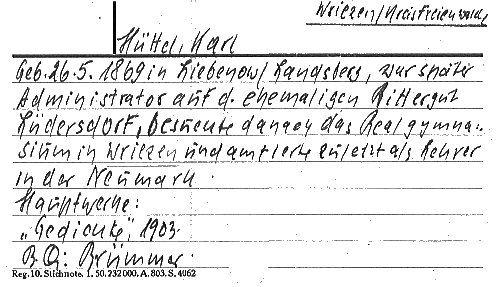 Wriezen/Kreis Freienwalde
Hüttel, Karl
Geb. 26.5.1869 in Liebenow/Landsberg, war später
Administrator auf d. ehemaligen Rittergut
Lüdersdorf, besuchte danach das Realgymna-
sium in Wriezen und amtierte zuletzt als Lehrer
in der Neumark.
Hauptwerke:
„Gedichte", 1903.
BQ: Brümmer.
Reg. 10. Stichnote. 1. 50. 232000. A. 803. S. 4062